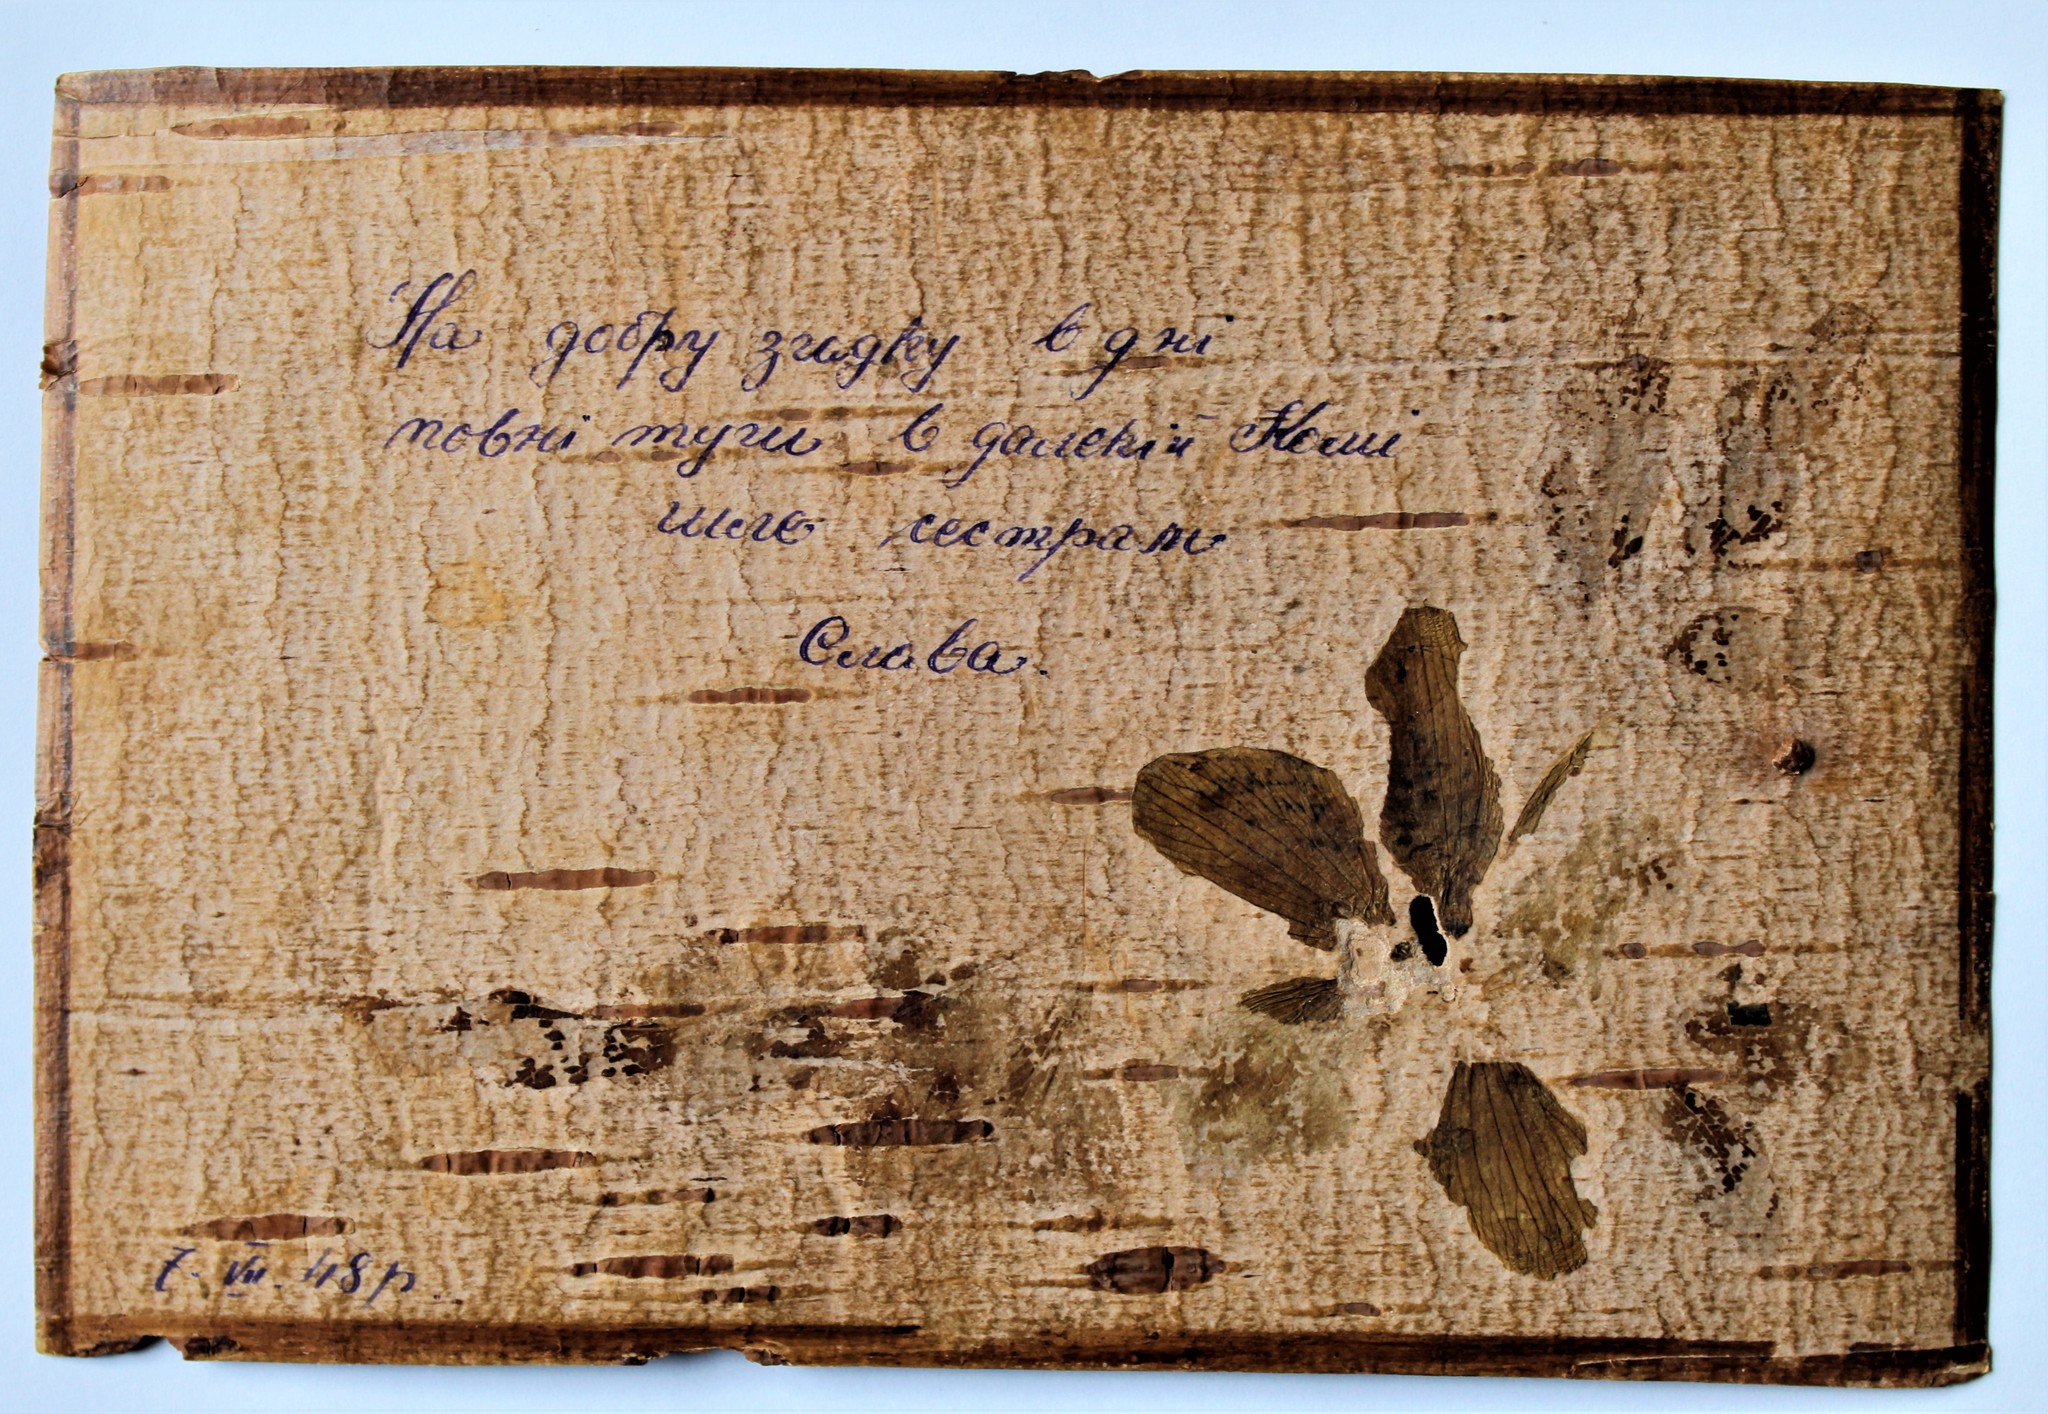 На добру згадку в дні
повні туги в далекій Комі
шлю сестрам
Слава.
7. VII. 48 р.